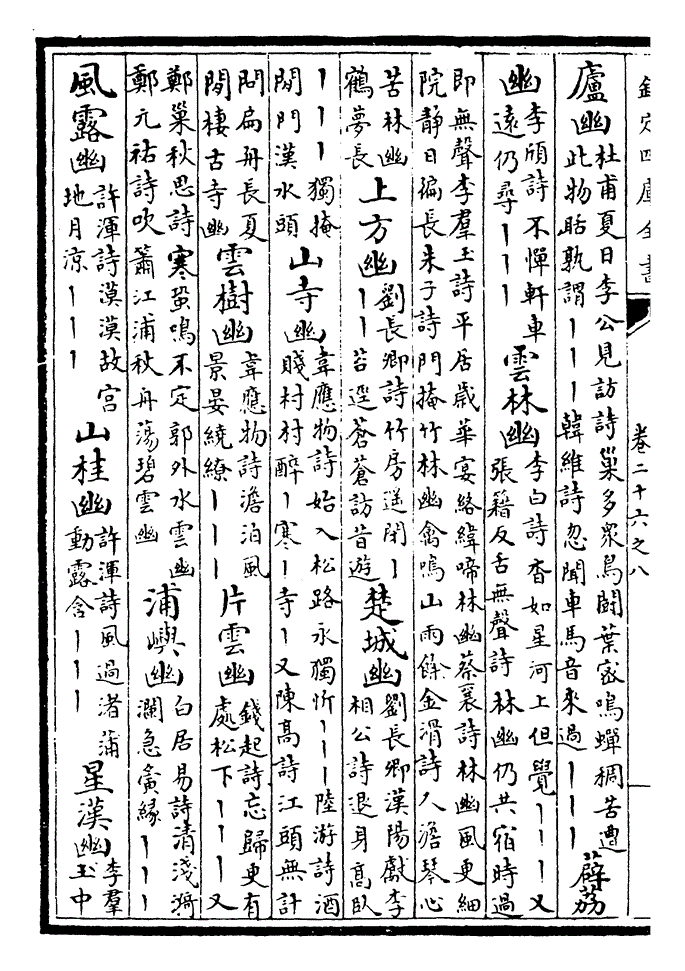 欽定四庫全書
卷二十六之八
廬幽
杜甫夏日李公見訪詩巢多衆鳥鬭葉密鳴蟬稠苦遭
此物聒孰謂丨丨丨韓維詩忽聞車馬音來過丨丨丨
薜荔
幽
李頎詩不憚軒車
遠仍尋丨丨丨
雲林幽
李白詩杳如星河上但覺丨丨丨又
張籍反舌無聲詩林幽仍共宿時過
即無聲李羣玉詩平居歲華宴絡緯啼林幽蔡襄詩林幽風更細
院靜日偏長朱子詩門掩竹林幽禽鳴山雨餘金涓詩人澹琴心
苦林幽
鶴夢長
上方幽
劉長卿詩竹房遥閉丨
丨丨苔逕蒼蒼訪昔遊
楚城幽
劉長卿漢陽獻李
相公詩退身髙臥
丨丨丨獨掩
閉門漢水頭
山寺幽
韋應物詩始入松路永獨忻丨丨丨陸游詩酒
賤村村醉丨寒丨寺丨又陳髙詩江頭無計
問扁舟長夏
閒棲古寺幽
雲樹幽
韋應物詩澹泊風
景晏繞繚丨丨丨
片雲幽
錢起詩忘歸更有
處松下丨丨丨又
鄭巢秋思詩寒蛩鳴不定郭外水雲幽
鄭元祐詩吹簫江浦秋舟蕩碧雲幽
浦嶼幽
白居易詩清淺漪
瀾急夤緣丨丨丨
風露幽
許渾詩漠漠故宫
地月涼丨丨丨
山桂幽
許渾詩風過渚蒲
動露含丨丨丨
星漢幽
李羣
玉中